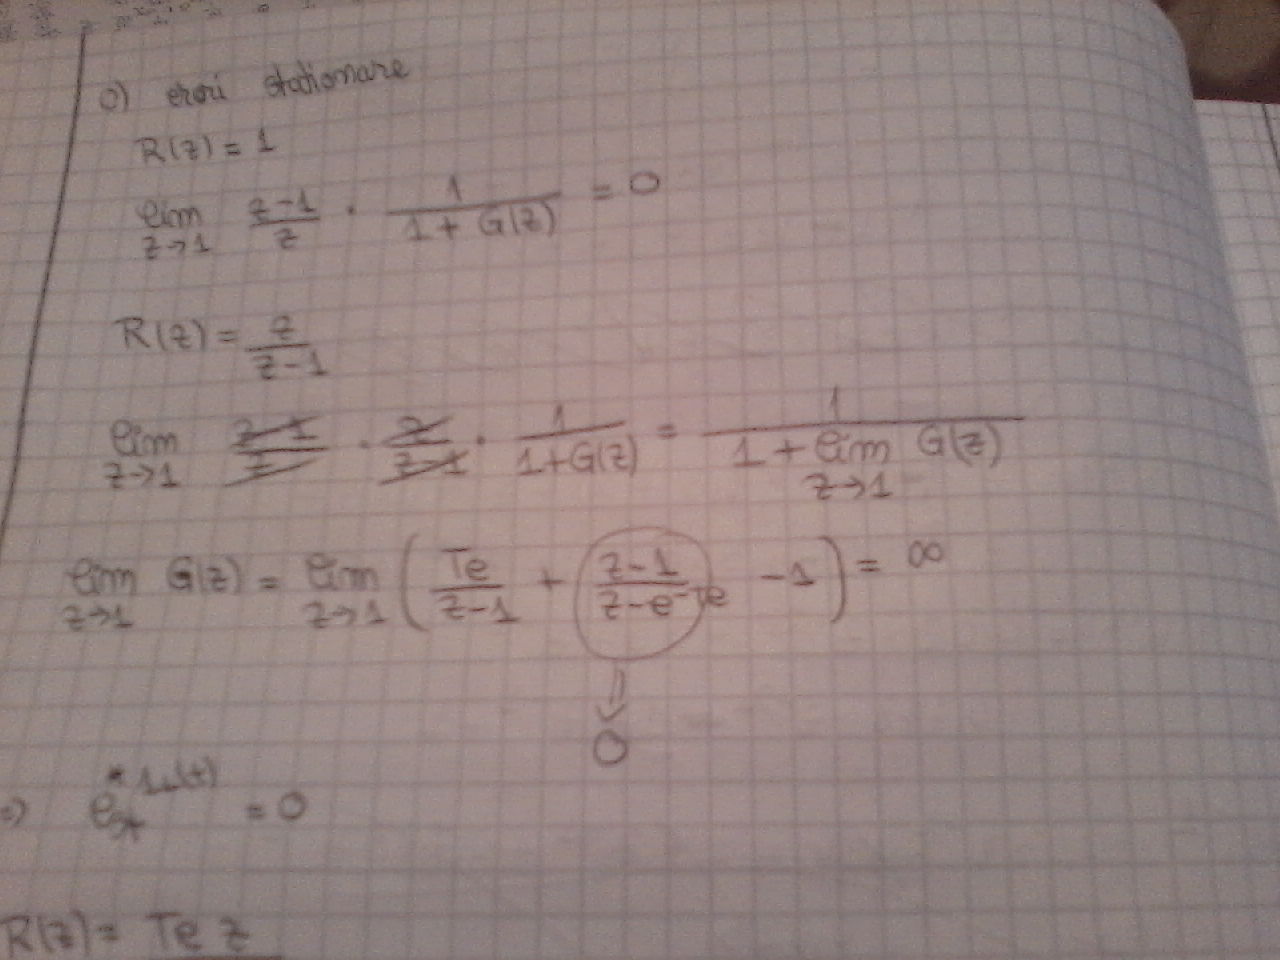 c) erori stationare
R(z) = 1
lim z→1 (z-1)/z · 1/(1 + G(z)) = 0
R(z) = z/(z-1)
lim z→1 (z-1)/z · z/(z-1) · 1/(1+G(z)) = 1/(1 + lim z→1 G(z))
lim z→1 G(z) = lim z→1 (Te/(z-1) + (z-1)/(z-e^-Te) - 1) = ∞
⇓
0
=) e*st 1u(t) = 0
R(z) = Te z